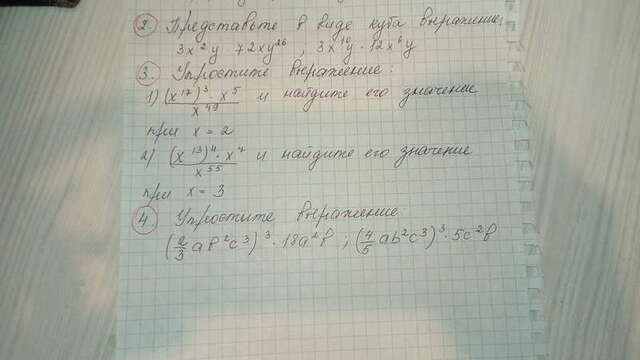 2. Представьте в виде куба выражение
3x²y · 72xy²⁶, 3x¹⁰y · 12x⁶y
3. Упростите выражение:
1) (x¹⁷)³ · x⁵ / x⁴⁹ и найдите его значение
при x = 2
2) (x¹³)⁴ · x⁷ / x⁵⁵ и найдите его значение
при x = 3
4. Упростите выражение
(2/3 ab²c³)³ · 18a²b ; (4/5 ab²c³)³ · 5c²b